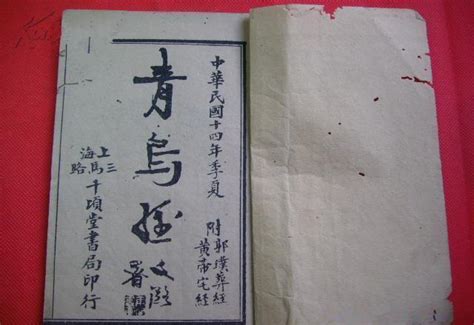 中華民國十四年季夏
附郭璞葬經
黃帝宅經
青烏經
署
上海三馬路
千頃堂書局印行